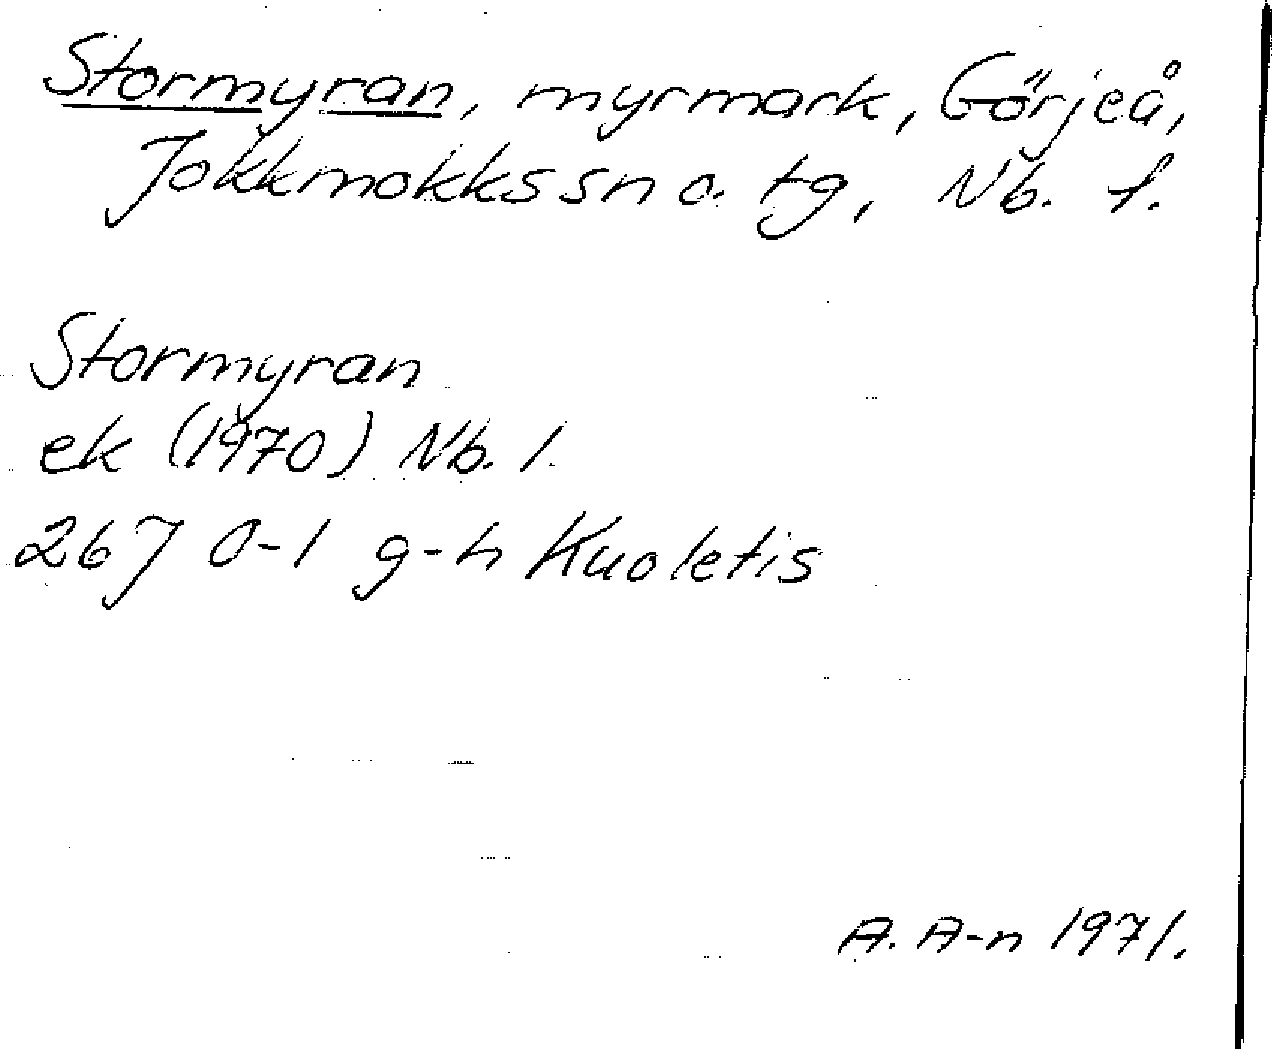 Stormyran, myrmark, Görjeå,
Jokkmokks sn o. tg, Nb. l.
Stormyran
ek (1970) Nb. l.
267 0-1 g-h Kuoletis
A. A-n 1971.